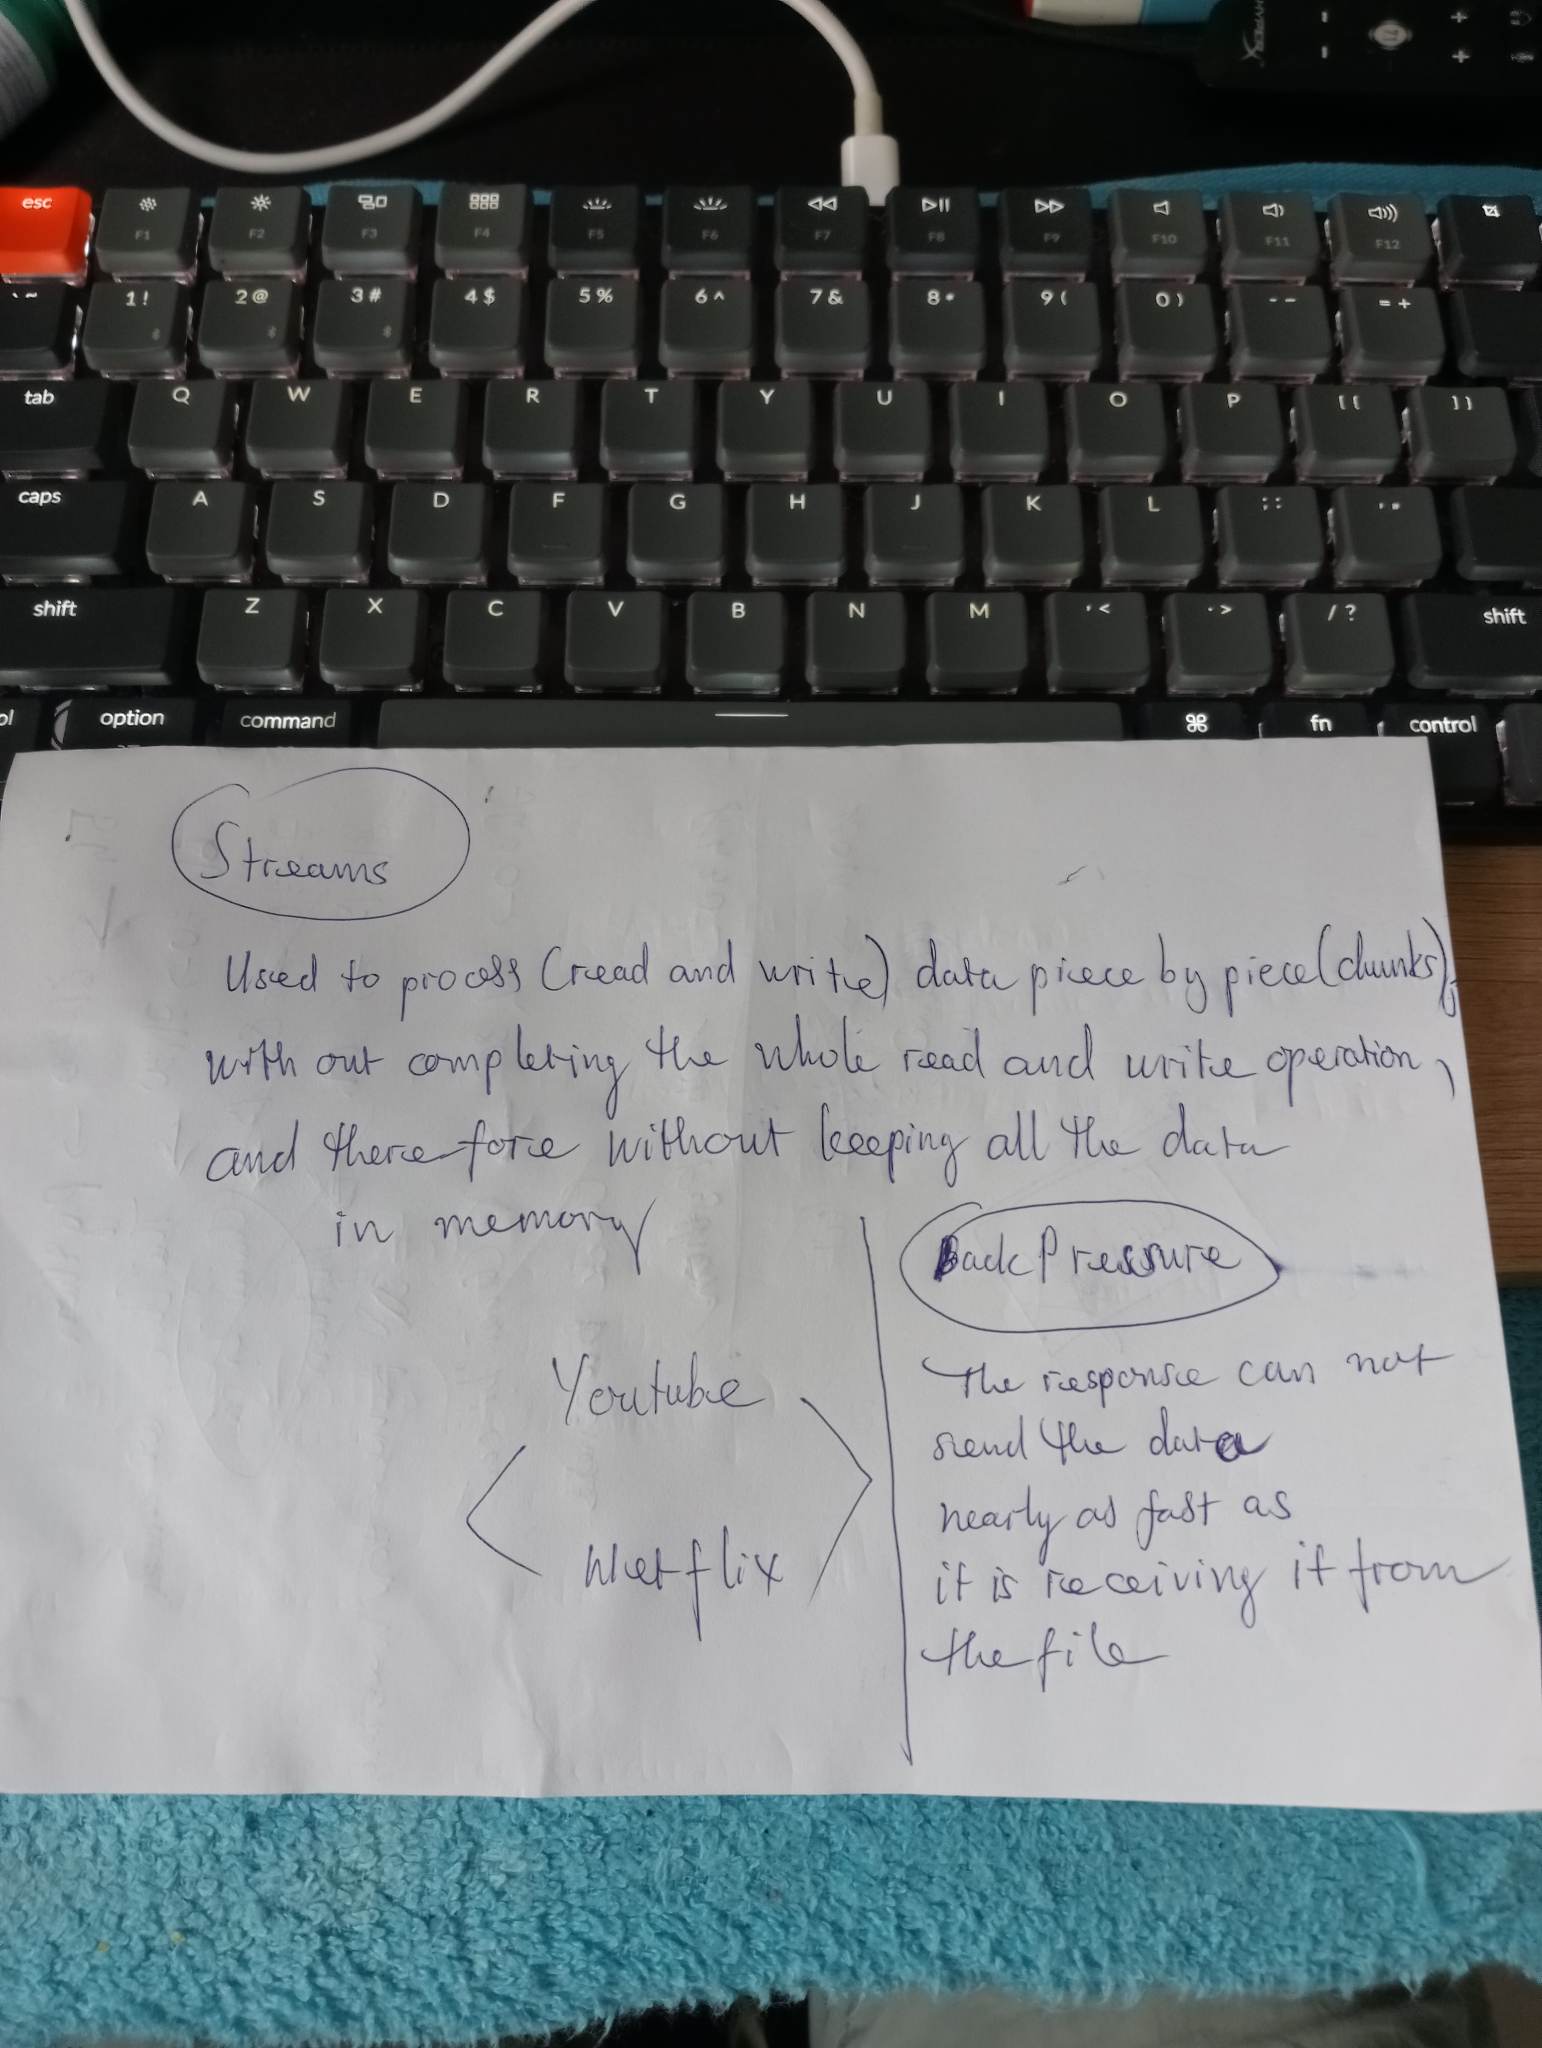 HYPERX
esc
F1 F2 F3 F4 F5 F6 F7 F8 F9 F10 F11 F12
` ~ 1 ! 2 @ 3 # 4 $ 5 % 6 ^ 7 & 8 * 9 ( 0 ) - - = +
tab Q W E R T Y U I O P [ { ] }
caps A S D F G H J K L ; : ' "
shift Z X C V B N M , < . > / ? shift
option command ⌘ fn control
Streams
Used to process (read and write) data piece by piece (chunks),
with out completing the whole read and write operation,
and therefore without keeping all the data
in memory
Youtube
Netflix
BackPressure
The response can not
send the data
nearly as fast as
it is receiving it from
the file